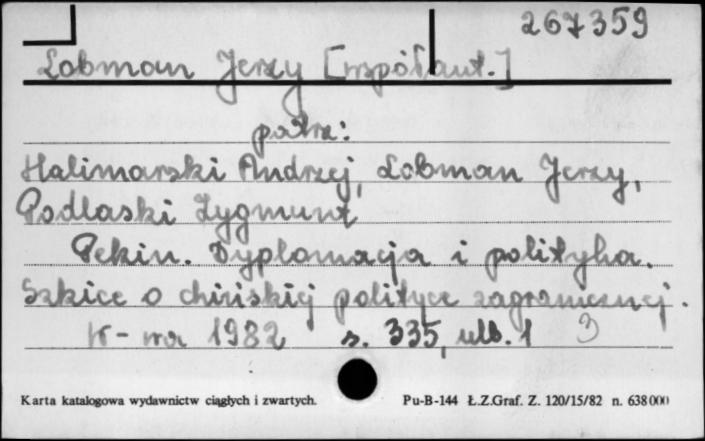 267359
Lobman Jerzy [współaut.]
patrz:
Halimarski Andrzej, Lobman Jerzy,
Podlaski Zygmunt
Pekin. Dyplomacja i polityka.
Szkice o chińskiej polityce zagranicznej.
W-wa 1982 s. 335, nlb. 1 3
Karta katalogowa wydawnictw ciągłych i zwartych. Pu-B-144 Ł.Z.Graf. Z. 120/15/82 n. 638000